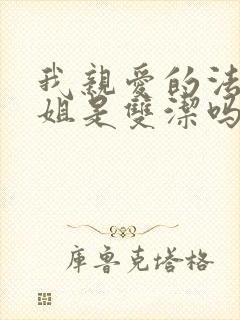 我親愛的法
姐是雙潔嗎
庫魯克塔格